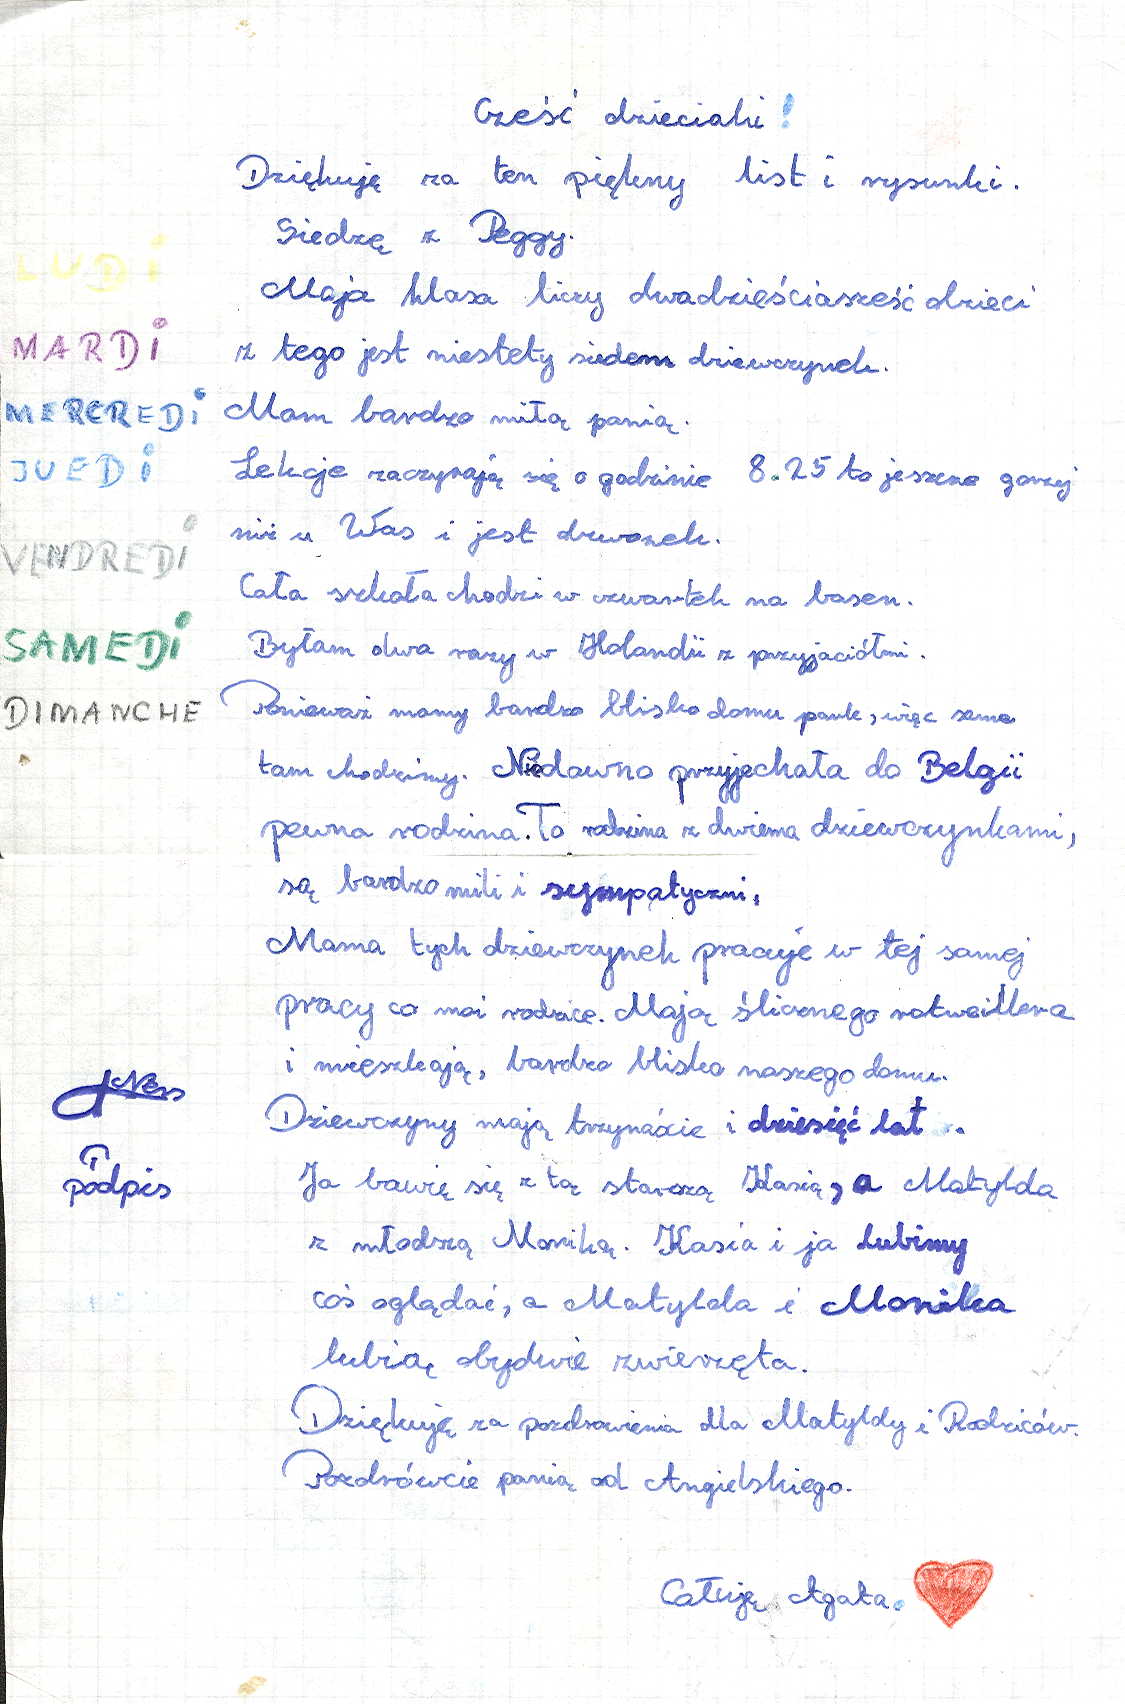 Cześć dzieciaki!
Dziękuję za ten piękny list i rysunki.
Siedzę z Peggy.
LUDI
Moja klasa liczy dwadzieściasześć dzieci
MARDI
z tego jest niestety siedem dziewczynek.
MERCREDI
Mam bardzo miłą panią.
JUEDI
Lekcje zaczynają się o godzinie 8.25 to jeszcze gorzej
niż u Was i jest dzwonek.
VENDREDI
Cała szkoła chodzi w czwartek na basen.
SAMEDI
Byłam dwa razy w Holandii z przyjaciółmi.
DIMANCHE
Ponieważ mamy bardzo blisko domu park, więc same
tam chodzimy. Niedawno przyjechała do Belgii
pewna rodzina. To rodzina z dwiema dziewczynkami,
są bardzo mili i sympatyczni,
Mama tych dziewczynek pracuje w tej samej
pracy co moi rodzice. Mają ślicznego rotweillera
i mieszkają, bardzo blisko naszego domu.
Dziewczyny mają trzynaście i dziesięć lat.
podpis
Ja bawię się z tą starszą Kasią, a Matylda
z młodszą Moniką. Kasia i ja lubimy
coś oglądać, a Matylda i Monika
lubią obydwie zwierzęta.
Dziękuję za pozdrowienia dla Matyldy i Rodziców.
Pozdrówcie panią od Angielskiego.
Całuję Agata.